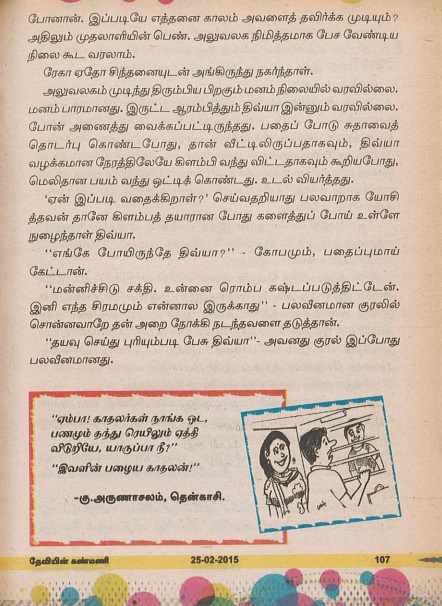 போனான். இப்படியே எத்தனை காலம் அவளைத் தவிர்க்க முடியும்?
அதிலும் முதலாளியின் பெண். அலுவலக நிமித்தமாக பேச வேண்டிய
நிலை கூட வரலாம்.
ரேகா ஏதோ சிந்தனையுடன் அங்கிருந்து நகர்ந்தாள்.
அலுவலகம் முடிந்து திரும்பிய பிறகும் மனம் நிலையில் வரவில்லை.
மனம் பாரமானது. இருட்ட ஆரம்பித்தும் திவ்யா இன்னும் வரவில்லை.
போன் அணைத்து வைக்கப்பட்டிருந்தது. பதைப் போடு சுதாவைத்
தொடர்பு கொண்டபோது, தான் வீட்டிலிருப்பதாகவும், திவ்யா
வழக்கமான நேரத்திலேயே கிளம்பி வந்து விட்டதாகவும் கூறியபோது,
மெலிதான பயம் வந்து ஒட்டிக் கொண்டது. உடல் வியர்த்தது.
‘ஏன் இப்படி வதைக்கிறாள்?’ செய்வதறியாது பலவாறாக யோசி
த்தவன் தானே கிளம்பத் தயாரான போது களைத்துப் போய் உள்ளே
நுழைந்தாள் திவ்யா.
‘‘எங்கே போயிருந்தே திவ்யா?’’ - கோபமும், பதைப்புமாய்
கேட்டான்.
‘‘மன்னிச்சிடு சக்தி. உன்னை ரொம்ப கஷ்டப்படுத்திட்டேன்.
இனி எந்த சிரமமும் என்னால இருக்காது’’ - பலவீனமான குரலில்
சொன்னவாறே தன் அறை நோக்கி நடந்தவளை தடுத்தான்.
‘‘தயவு செய்து புரியும்படி பேசு திவ்யா’’- அவனது குரல் இப்போது
பலவீனமானது.
‘‘ஏம்பா! காதலர்கள் நாங்க ஓட,
பணமும் தந்து ரெயிலும் ஏத்தி
விடுறியே, யாருப்பா நீ?’’
‘‘இவளின் பழைய காதலன்!’’
-கு.அருணாசலம், தென்காசி.
தேவியின் கண்மணி 25-02-2015 107